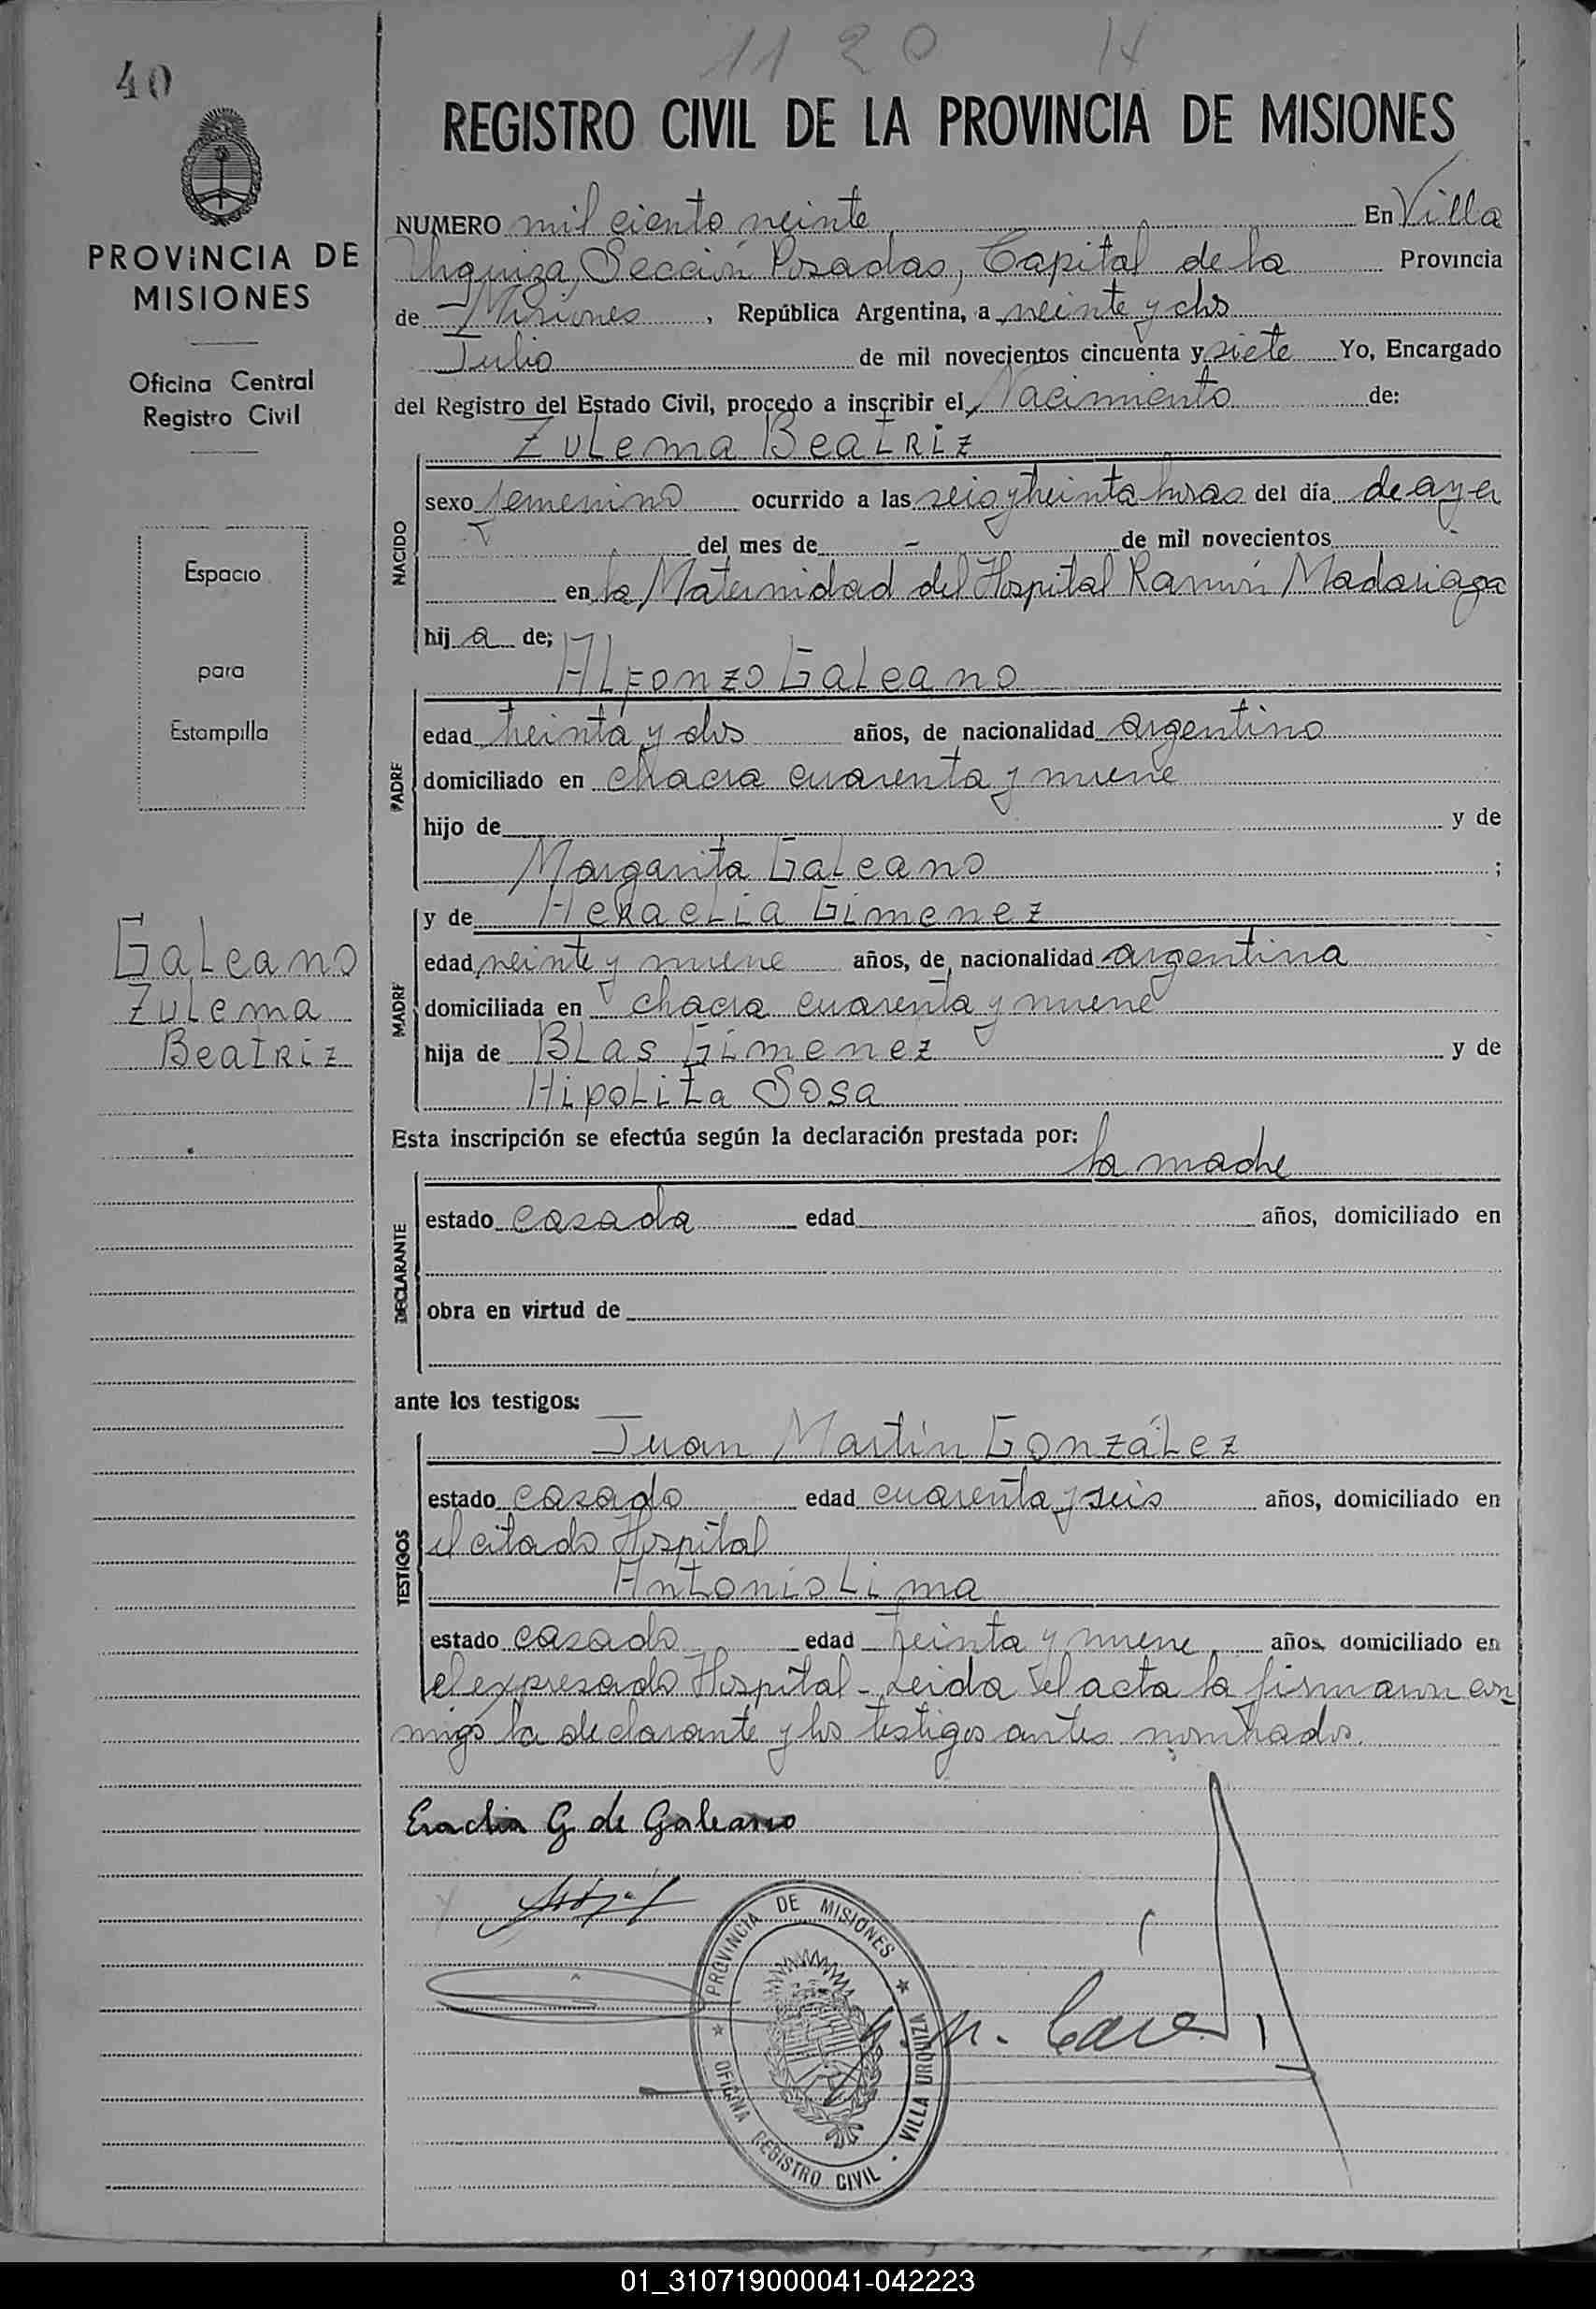 1120 H
40
REGISTRO CIVIL DE LA PROVINCIA DE MISIONES
PROVINCIA DE
MISIONES
Oficina Central
Registro Civil
Espacio
para
Estampilla
Galeano
Zulema
Beatriz
NUMERO mil ciento veinte En Villa
Urquiza, Sección Posadas, Capital de la Provincia
de Misiones, República Argentina, a veinte y dos
Julio de mil novecientos cincuenta y siete Yo, Encargado
del Registro del Estado Civil, procedo a inscribir el Nacimiento de:
Zulema Beatriz
NACIDO
sexo femenino ocurrido a las seis y treinta horas del día de ayer
del mes de - de mil novecientos
en la Maternidad del Hospital Ramón Madariaga
hij a de;
Alfonzo Galeano
PADRE
edad treinta y dos años, de nacionalidad argentino
domiciliado en chacra cuarenta y nueve
hijo de y de
Margarita Galeano ;
y de Heraclia Gimenez
MADRE
edad veinte y nueve años, de nacionalidad argentina
domiciliada en chacra cuarenta y nueve
hija de Blas Gimenez y de
Hipolita Sosa
Esta inscripción se efectúa según la declaración prestada por:
la madre
DECLARANTE
estado casada edad años, domiciliado en
obra en virtud de
ante los testigos:
Juan Martín González
TESTIGOS
estado casado edad cuarenta y seis años, domiciliado en
el citado Hospital
Antonio Lima
estado casado edad treinta y nueve años, domiciliado en
el expresado Hospital - Leida el acta la firmaron con
migo la declarante y los testigos antes nombrados.
Eraclia G de Galeano
PROVINCIA DE MISIONES
OFICINA REGISTRO CIVIL · VILLA URQUIZA
01_310719000041-042223